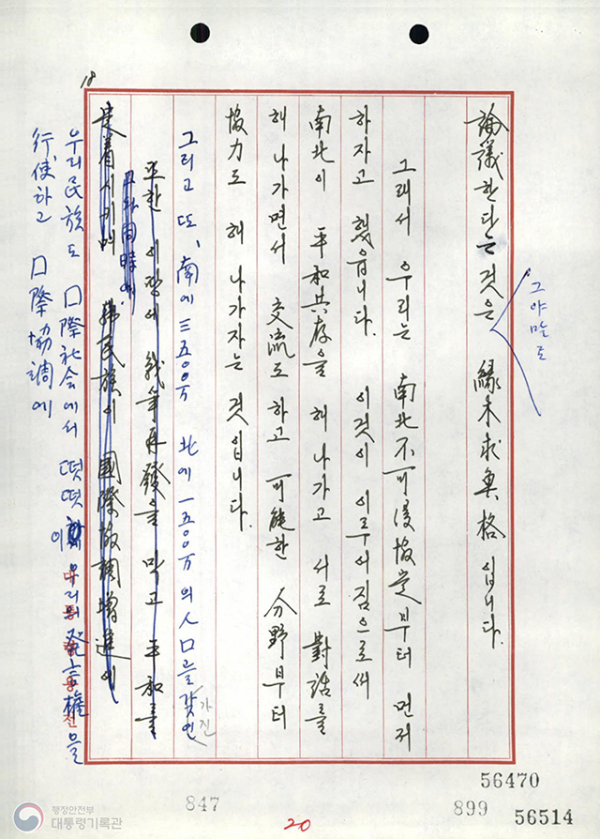 18
論議한다는 것은 緣木求魚格입니다.
그야말로
그래서 우리는 南北不可侵協定부터 먼저
하자고 했읍니다. 이것이 이루어짐으로써
南北이 平和共存을 해 나가고 서로 對話를
해 나가면서 交流도 하고 可能한 分野부터
協力도 해 나가자는 것입니다.
그리고 또, 南에 三五00万 北에 一五00万의 人口를 갖인
가진
또한 이 땅에 戰爭再發을 막고 平和를
그와 同時에,
定着시키며 韓民族이 國際協調增進에
우리 民族도 口際社会에서 떳떳이 우리의 発言權을
行使하고 口際協調에
847
20
899
56470
56514
행정안전부
대통령기록관